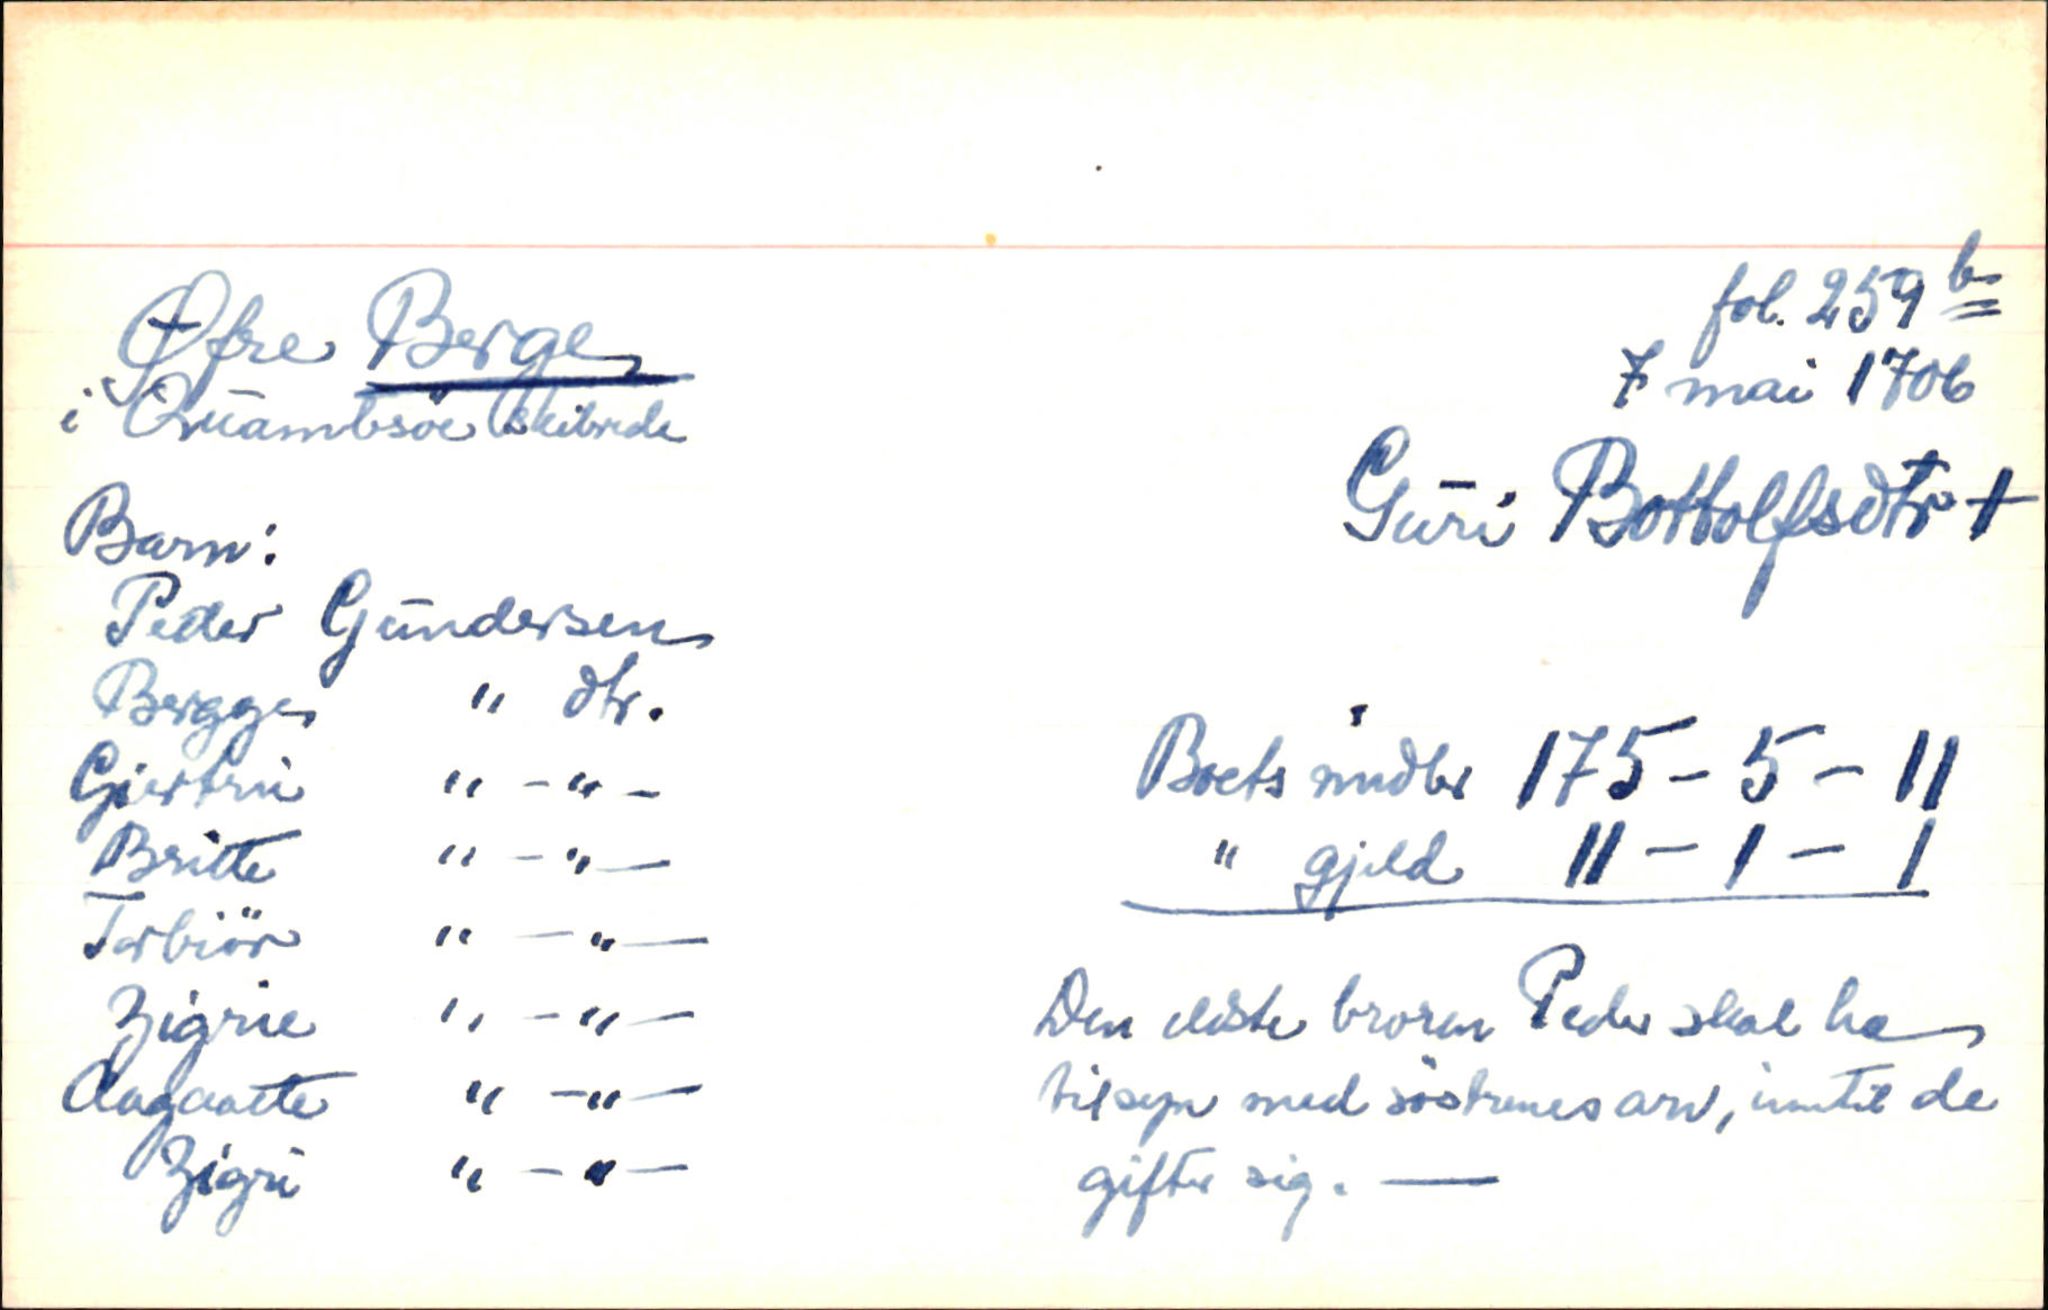 fol. 259 b
Øfre Berge
7 mai 1706
i Quambsöe Skibrede
Guri Bottolfsdtr +
Barn:
Peder Gundersen
Bergge " dtr.
Giertrü " - " -
Britte " - " -
Torbiör " - " -
Zigrie " - " -
Aagaatte " - " -
Zigri " - " -
Boets midler 175 - 5 - 11
" gjeld 11 - 1 - 1
Den eldste broren Peder skal ha
tilsyn med söstrenes arv, inntil de
gifter sig. —